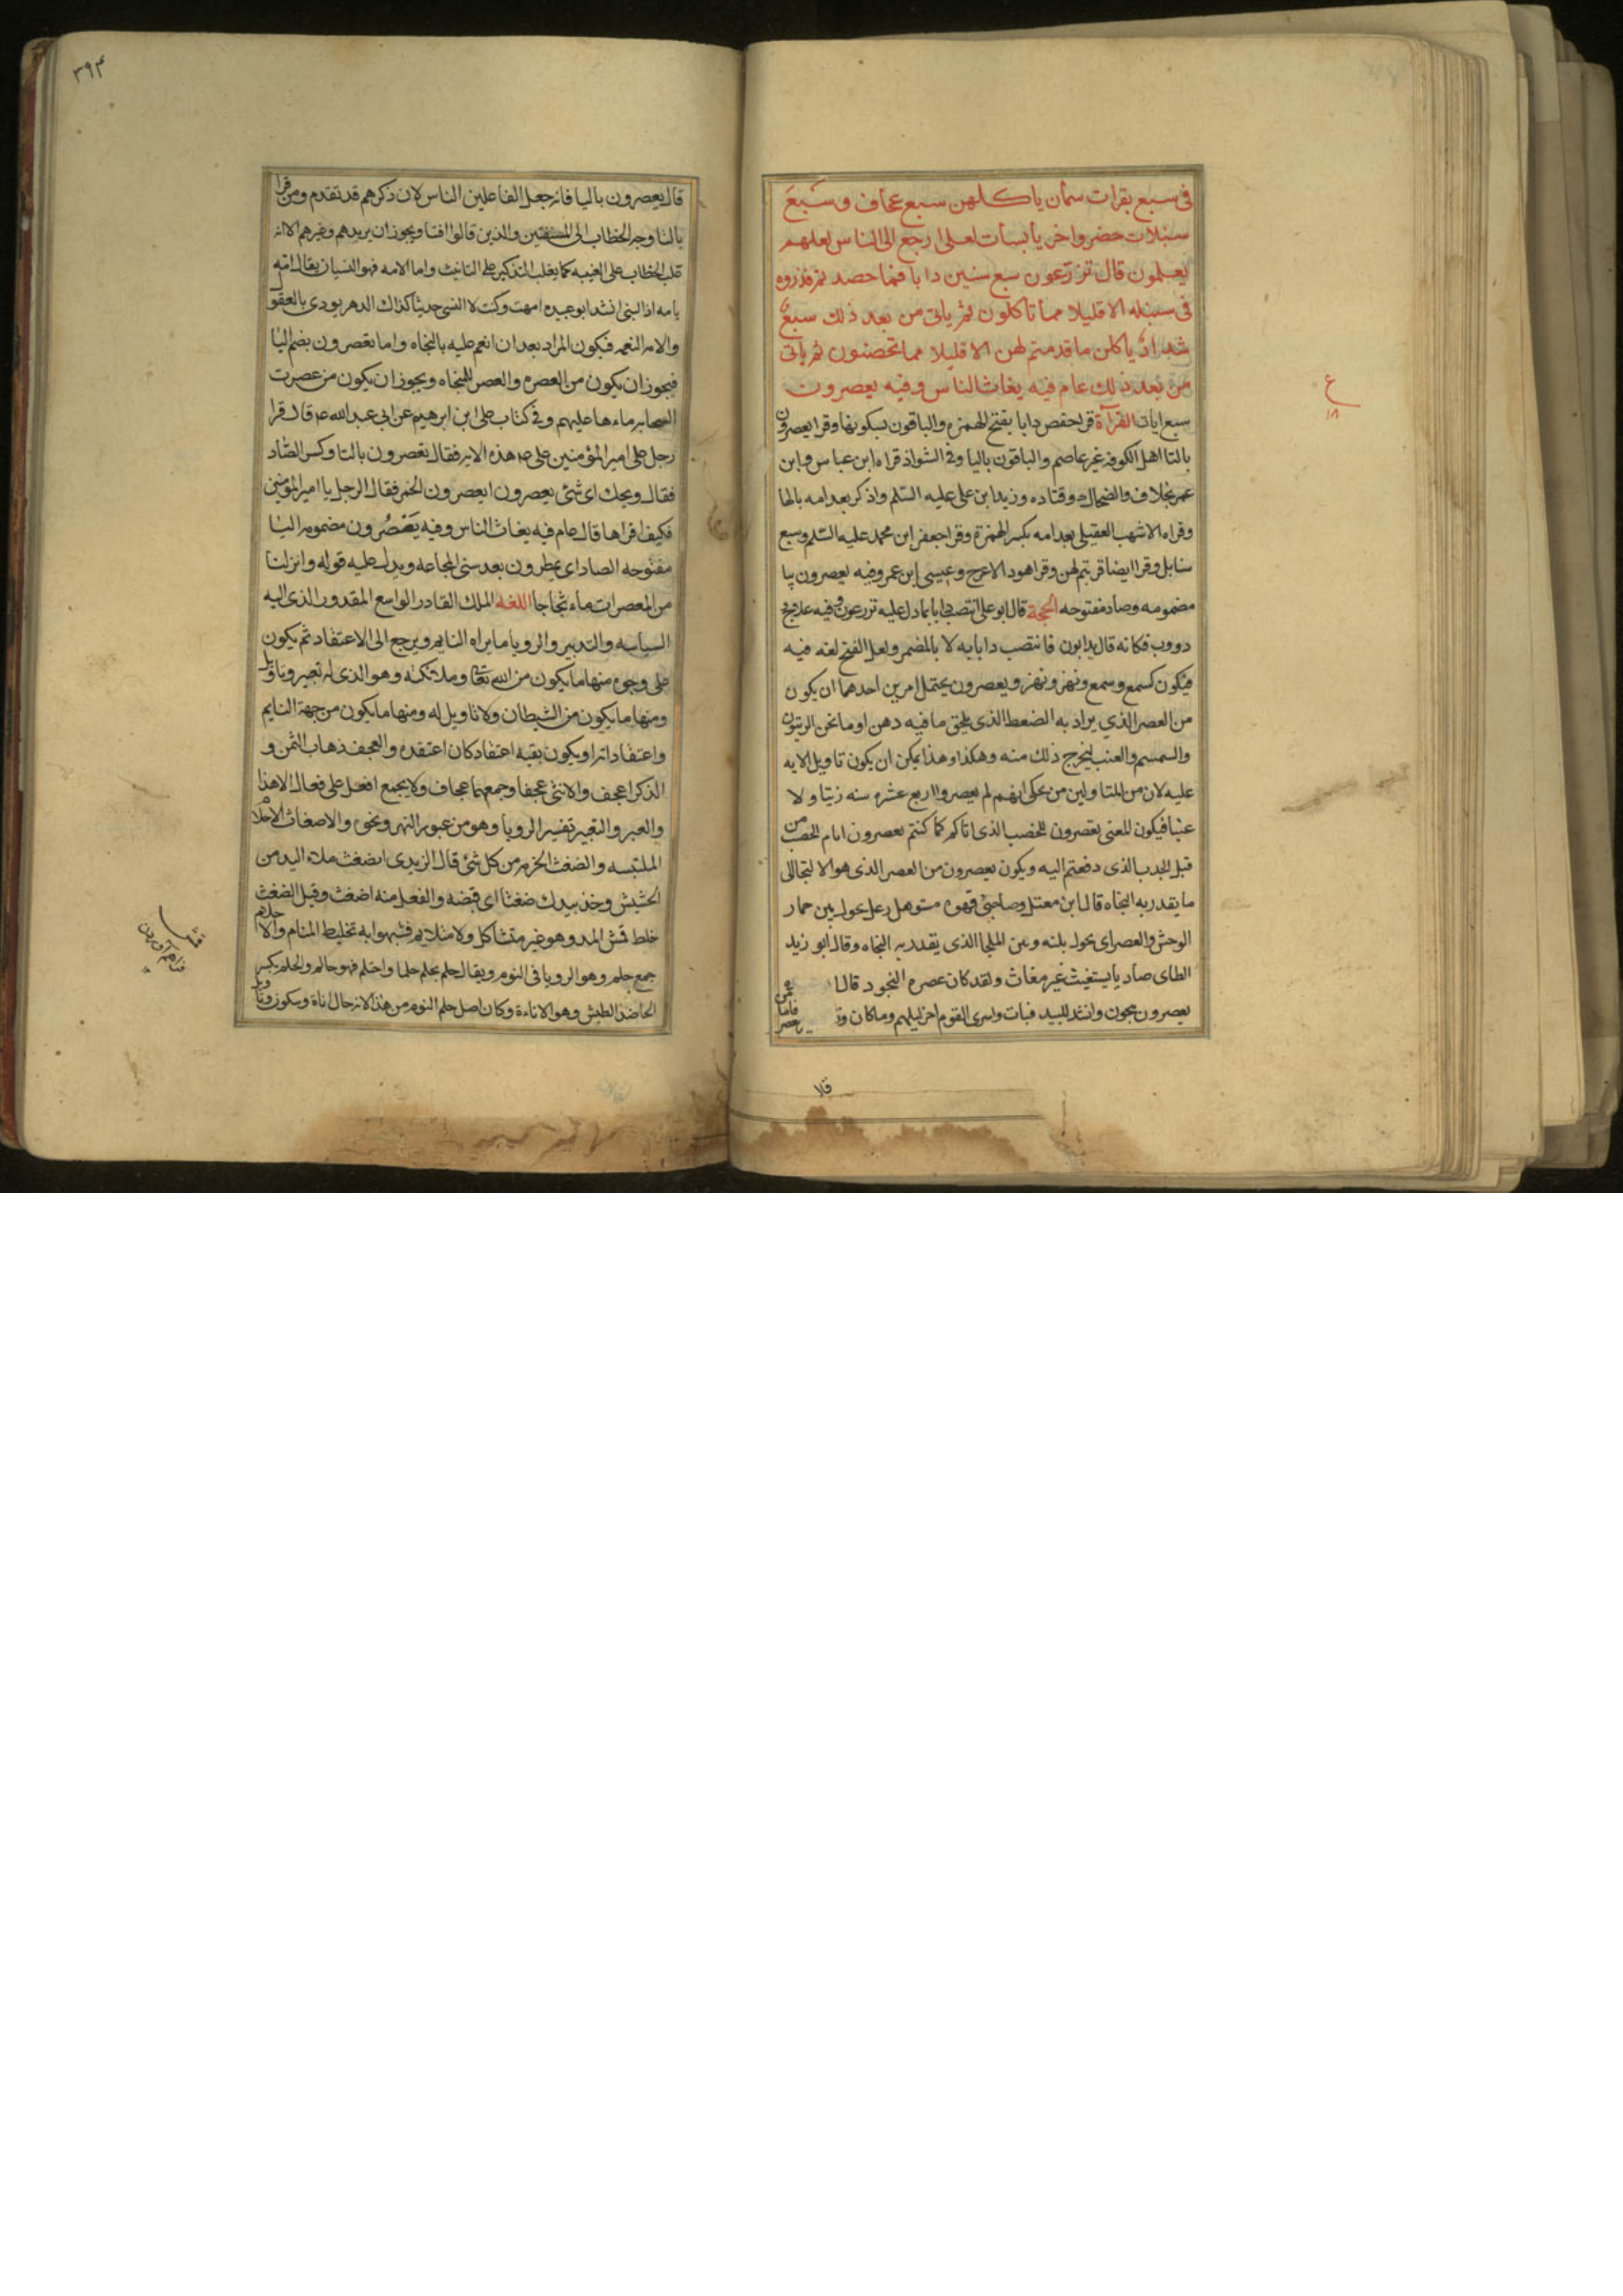 فى سبع بقرات سمان ياكلهن سبع عجاف و سبع
سنبلات خضر واخر يابسات لعلى ارجع الى الناس لعلهم
يعلمون قال تزرعون سبع سنين دابا فما حصدتم فذروه
فى سنبله الا قليلا مما تاكلون ثم ياتى من بعد ذلك سبع
شداد ياكلن ما قدمتم لهن الا قليلا مما تحصنون ثم ياتى
من بعد ذلك عام فيه يغاث الناس وفيه يعصرون
سبع ايات القرآءة قرا حفص دابا بفتح الهمزه والباقون بسكونها وقرا يعصرون
بالتا اهل الكوفه غير عاصم والباقون باليا وفى الشواذ قراه ابن عباس وابن
عمر بخلاف والضحاك وقتاده وزيد ابن على عليه السّلم واذكر بعد امه بالها
وقراه الاشهب العقيلى بعد امه بكسر الهمزة وقرا جعفر ابن محمد عليه السّلم وسبع
سنابل وقرا ايضا قربتم لهن وقرا هو والاعرج وعيسى ابن عمر وفيه يعصرون بيا
مضمومه وصاد مفتوحه الحجة قال ابو على انتصب دابا بما دل عليه تزرعون وفيه علاج
دووب فكانه قال يدابون فانتصب دابا به لا بالمضمر ولعل الفتح لغه فيه
فيكون كسمع وسمع ونهر ونهر ويعصرون يحتمل امرين احدهما ان يكون
من العصر الذي يراد به الضغط الذى يلحق ما فيه دهن او ما نحن الزيتون
والسمسم والعنب ليخرج ذلك منه وهكذا وهذا يمكن ان يكون تاويل الايه
عليه لان من المتاولين من يحكى انهم لم يعصروا اربع عشره سنه زيتا ولا
عنبا فيكون المعنى تعصرون للخصب الذى اتاكم كما كنتم تعصرون ايام الخصب من
قبل الجدب الذى دفعتم اليه ويكون يعصرون من العصر الذى هو الالتجا الى
ما يقدر به النجاه قال ابن مقبل وصاحبى وهوه مستوهل زعل يحول بين حمار
الوحش والعصر اى يحول بينه وبين الملجا الذى يقدر به النجاه وقال ابو زيد
الطاى صاديا يستغيث غير مغاث ولقد كان عصره المنجود قال
يعصرون ينجون وانشد للبيد فبات واسرى القوم اخر ليلهم وما كان وقا
قلا
ع
١٨
٣٩٣
قال يعصرون باليا فانه جعل الفاعلين الناس لان ذكرهم قد تقدم ومن قرا
بالتا وجه الخطاب الى المستفتين والذين قالوا افتنا ويجوز ان يريدهم وغيرهم الا انه
غلب الخطاب على الغيبه كما يغلب التذكير على التانيث واما الامه فهو النسيان يقال امه
يامه اذا نسى انشد ابو عبيده امهت وكنت لا انسى حديثا كذاك الدهر يودى بالعقول
والامه النعمه فيكون المراد بعد ان انعم عليه بالنجاه واما تعصرون بضم اليا
فيجوز ان يكون من العصره والعصر للنجاه ويجوز ان يكون من عصرت
السحابه ماءها عليهم وفى كتاب على ابن ابرهيم عن ابى عبد الله ع قال قرا
رجل على امير المؤمنين على ع هذه الايه فقال تعصرون بالتا وكسر الصّاد
فقال ويحك اى شئ يعصرون ايعصرون الخمر فقال الرجل يا امير المؤمنين
فكيف اقراها قال عام فيه يغاث الناس وفيه يُعصَرون مضمومه اليا
مفتوحه الصاد اى يمطرون بعد سنى المجاعه ويدل عليه قوله وانزلنا
من المعصرات ماء ثجاجا اللغه الملك القادر الواسع المقدور الذى اليه
السياسه والتدبير والرويا ما يراه النايم ويرجع الى الاعتقاد ثم يكون
على وجوه منها ما يكون من الله تعالى وملائكته وهو الذى له تعبير وتاويل
ومنها ما يكون من الشيطان ولا تاويل له ومنها ما يكون من جهة النايم
واعتقاداته او يكون بقيه اعتقاد كان اعتقده والعجف ذهاب السمن و
الذكر اعجف والانثى عجفا وجمعهما عجاف ولا يجمع افعل على فعال الا هذا
والعبر والتعبير تفسير الرويا وهو من عبور النهر ونحوه والاضغاث الاحلام
الملتبسه والضغث الحزمه من كل شئ قال الزيدى الضغث ملاء اليد من
الحشيش وخذ بيدك ضغثا اى قبضه والفعل منه اضغث وقيل الضغث
خلط قش المد وهو غير متشاكل ولا متلايم فشبهوا به تخليط المنام والاحلام
جمع حلم وهو الرويا فى النوم ويقال حلم يحلم حلما واحتلم فهو حالم والحلم بكسر
الحا ضد الطيش وهو الاناءة وكان اصل حلم النوم من هذا لانه حال اناة وسكون وتا